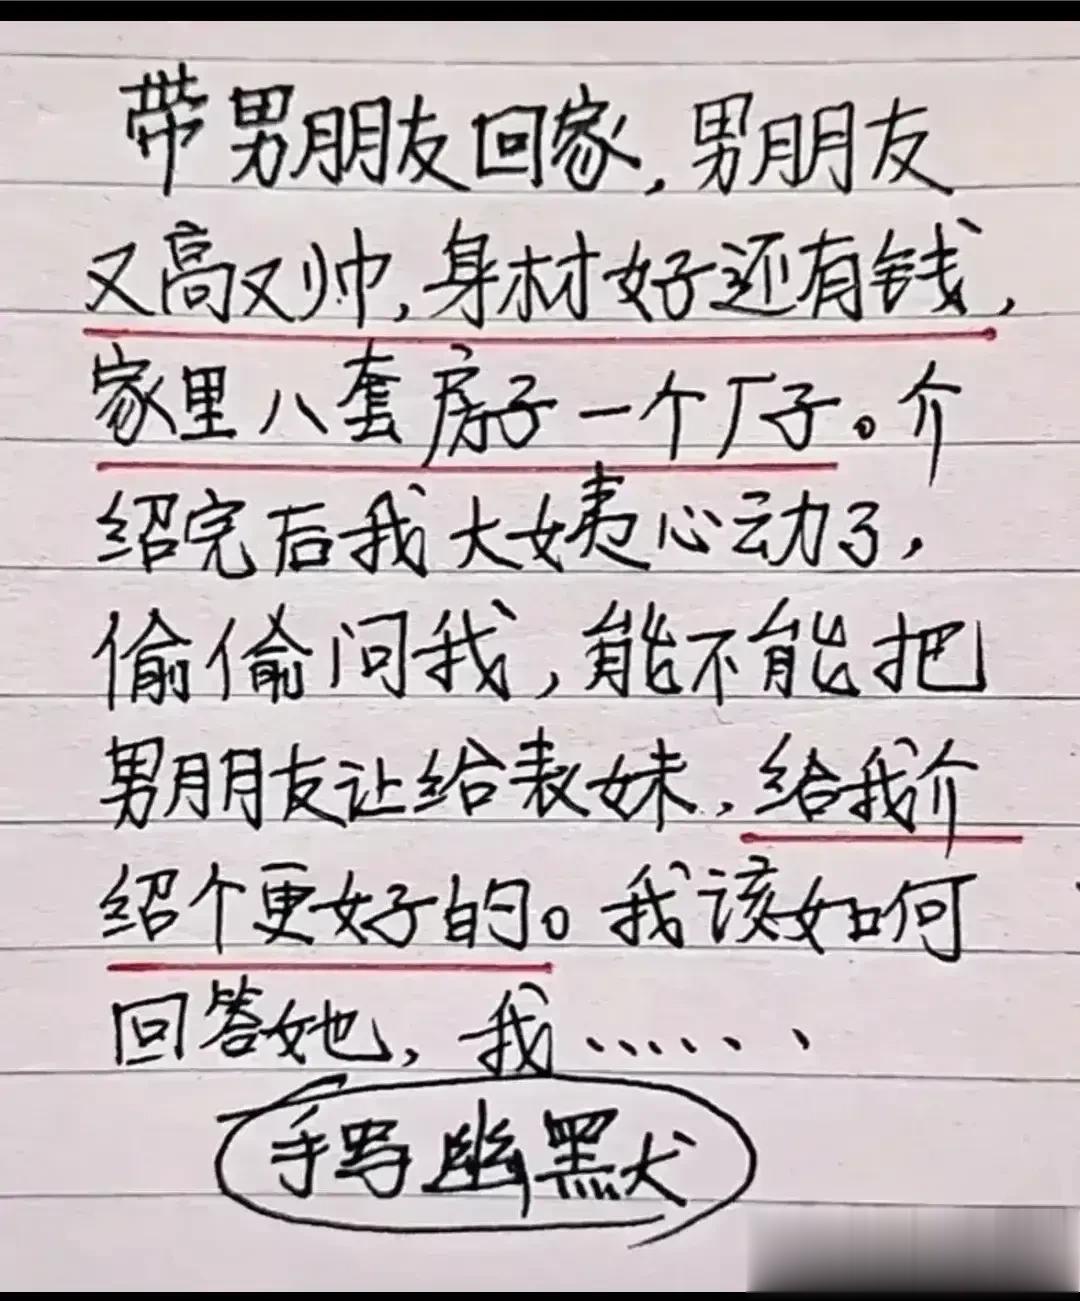 带男朋友回家,男朋友
又高又帅,身材好还有钱,
家里八套房子一个厂子。介
绍完后我大姨心动了,
偷偷问我,能不能把
男朋友让给表妹,给我介
绍个更好的。我该如何
回答她,我……
手写幽默